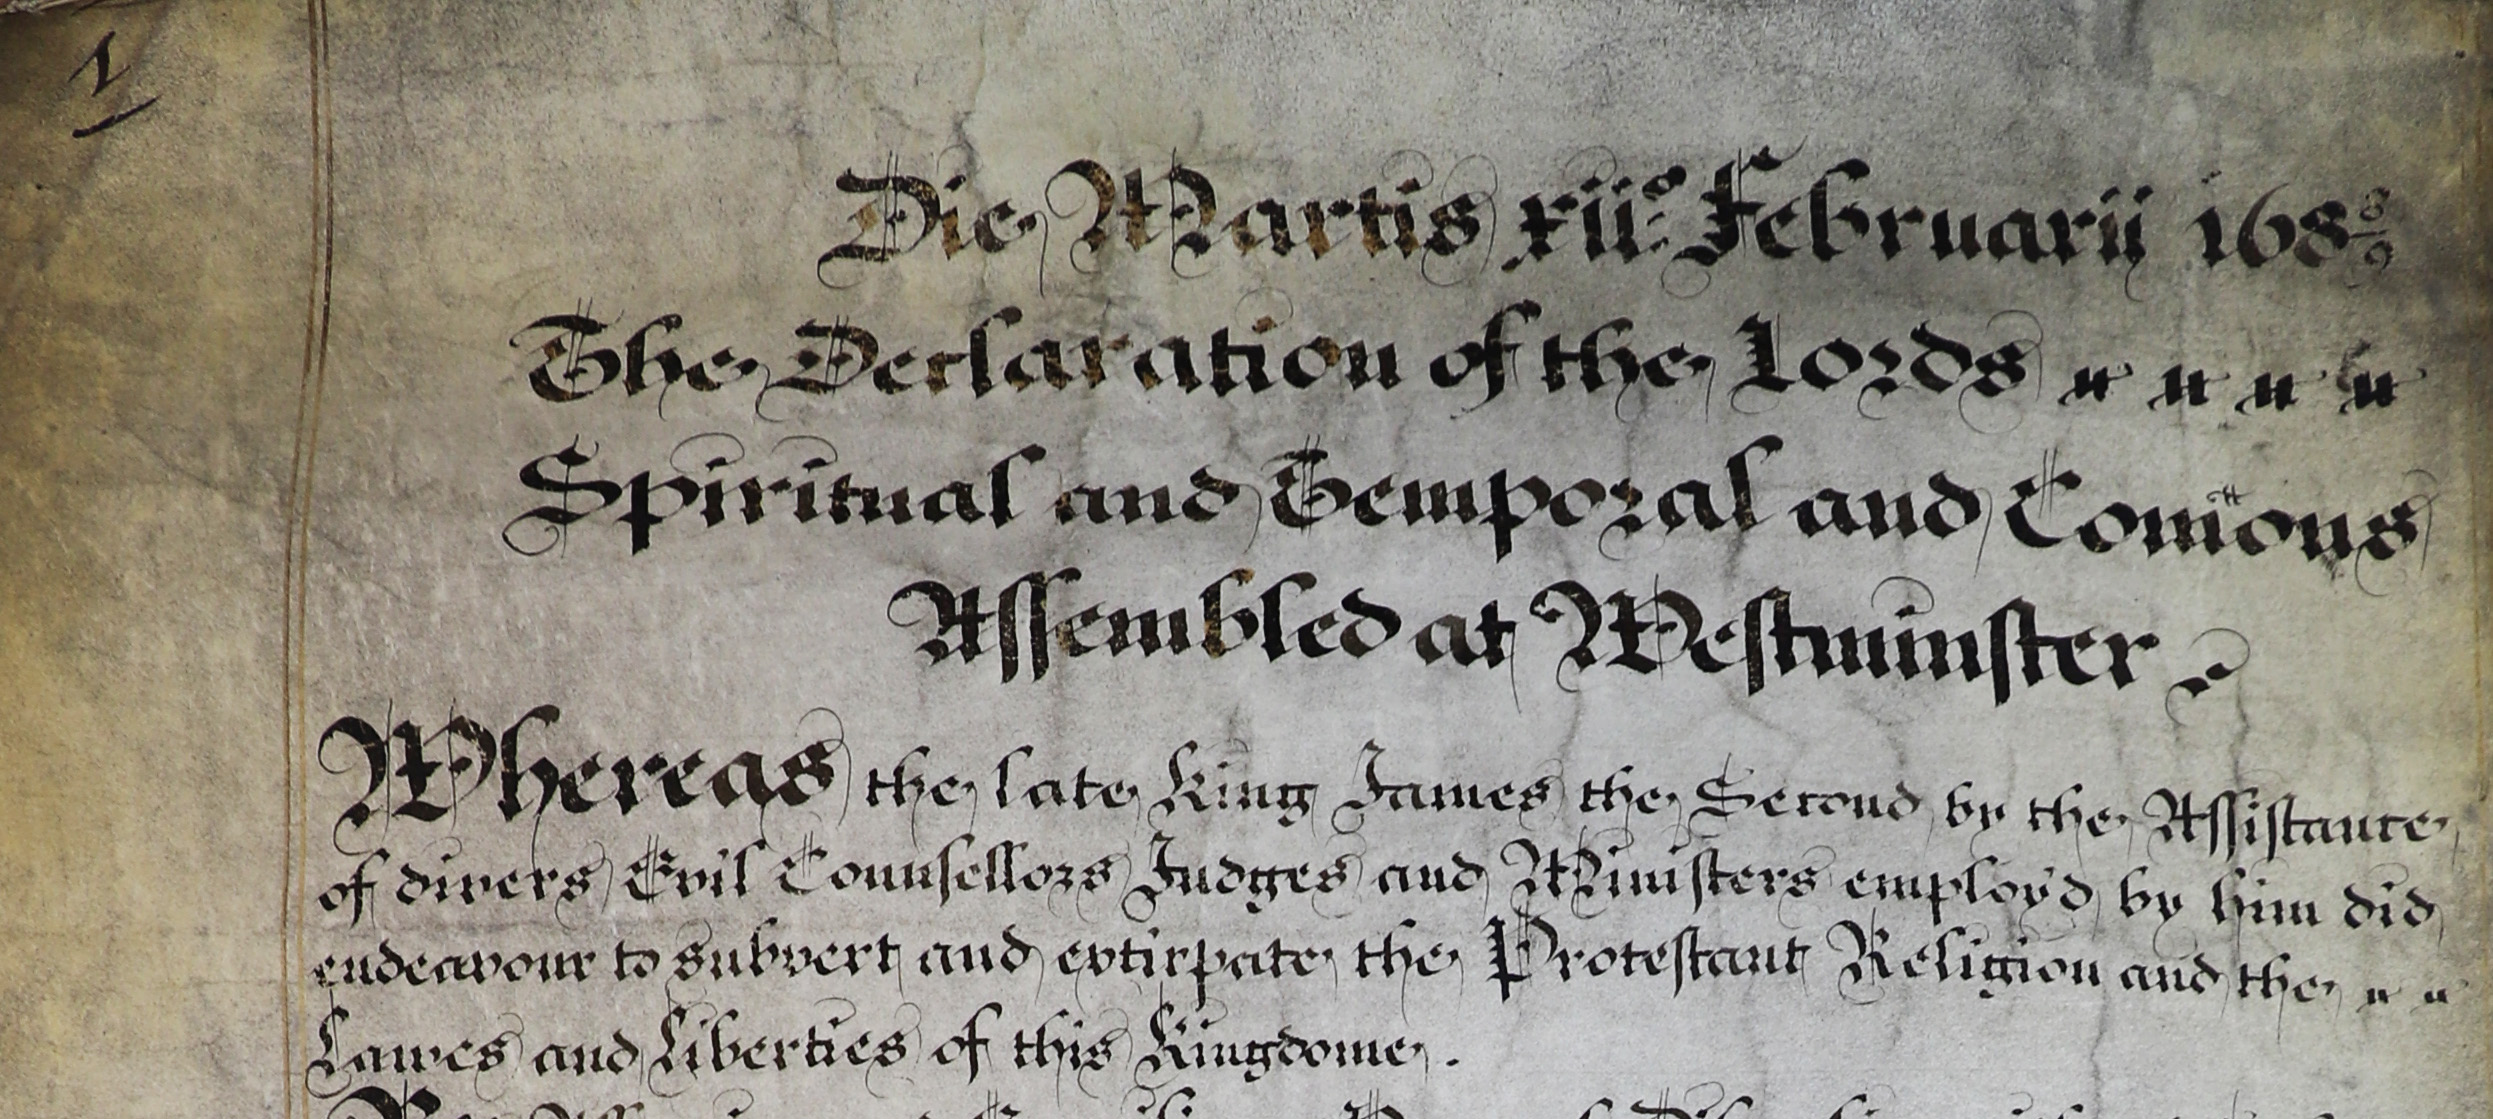 1
Die Martis xii.º Februarii 168 8/9
The Declaration of the Lords
Spiritual and Temporal and Com̄ons
Assembled at Westminster
Whereas the late King James the Second by the Assistance
of divers Evil Counsellors Judges and Ministers employ'd by him did
endeavour to subvert and extirpate the Protestant Religion and the
Lawes and Liberties of this Kingdome.